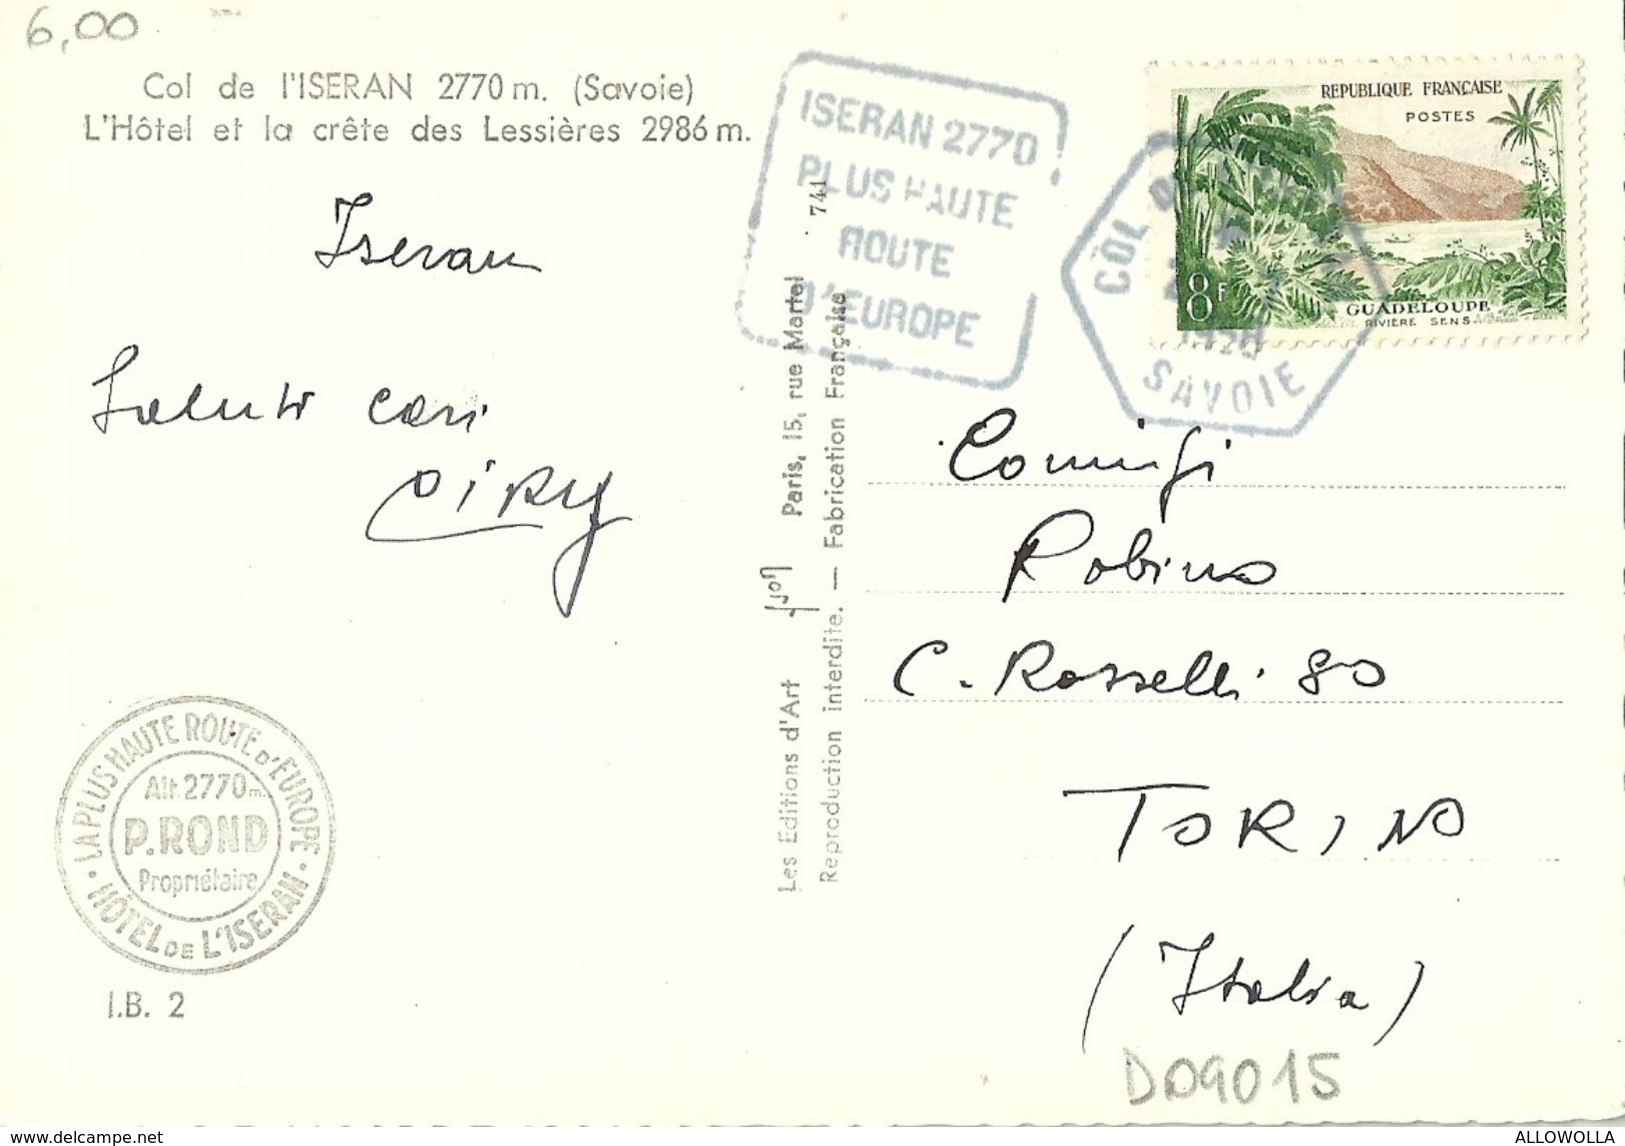 6,00
Col de l'ISERAN 2770 m. (Savoie)
L'Hôtel et la crête des Lessières 2986 m.
Iseran
Saluti cari
LA PLUS HAUTE ROUTE D'EUROPE
Alt. 2770 m.
P. ROND
Propriétaire
HÔTEL DE L'ISERAN
I.B. 2
Les Editions d'Art Yvon Paris, 15, rue Martel 741
Reproduction interdite. — Fabrication Française
ISERAN 2770
PLUS HAUTE
ROUTE
D'EUROPE
COL
SAVOIE
REPUBLIQUE FRANÇAISE
POSTES
8F
GUADELOUPE
RIVIERE SENS
Coniugi
Robino
C. Rosselli 80
TORINO
(Italia)
D09015
delcampe.net
ALLOWOLLA